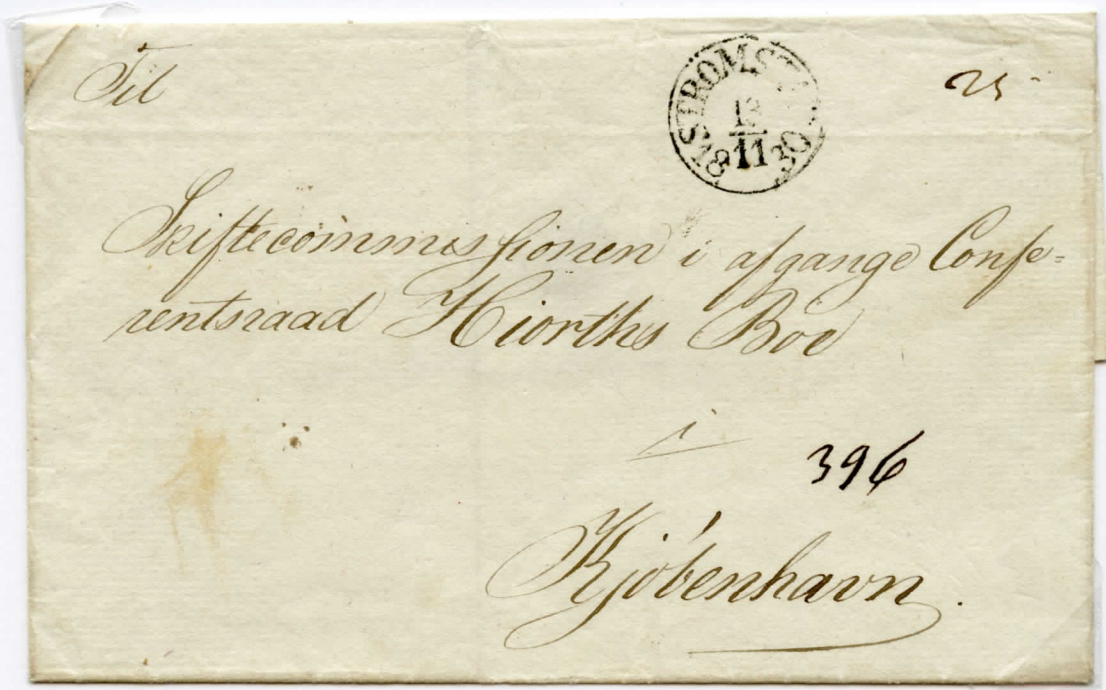 Til
STROMSTA
12
11
1830
25
Skiftecommissionen i afgange Confe=
rentsraad Hiorths Boe
i
396
Kjöbenhavn.